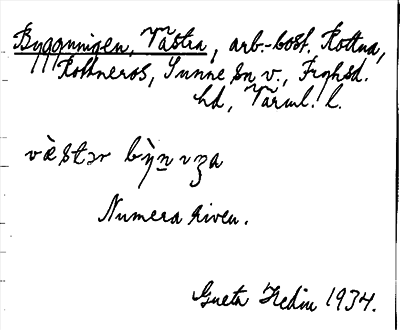 Byggningen, Västra, arb.-bost. Rottna,
Rottneros, Sunne sn v., Fryksd.
hd, Värml. l.
væ̀stər bỳn ɩza
Numera riven.
Greta Hedin 1934.